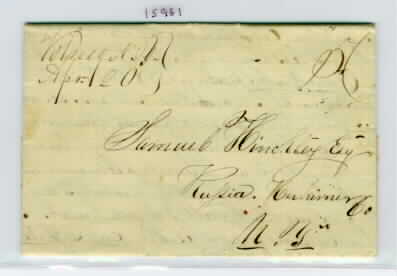 15961
Apr 20
Samuel Hinckley Esq
Russia. Herkimer Co
N. Y.